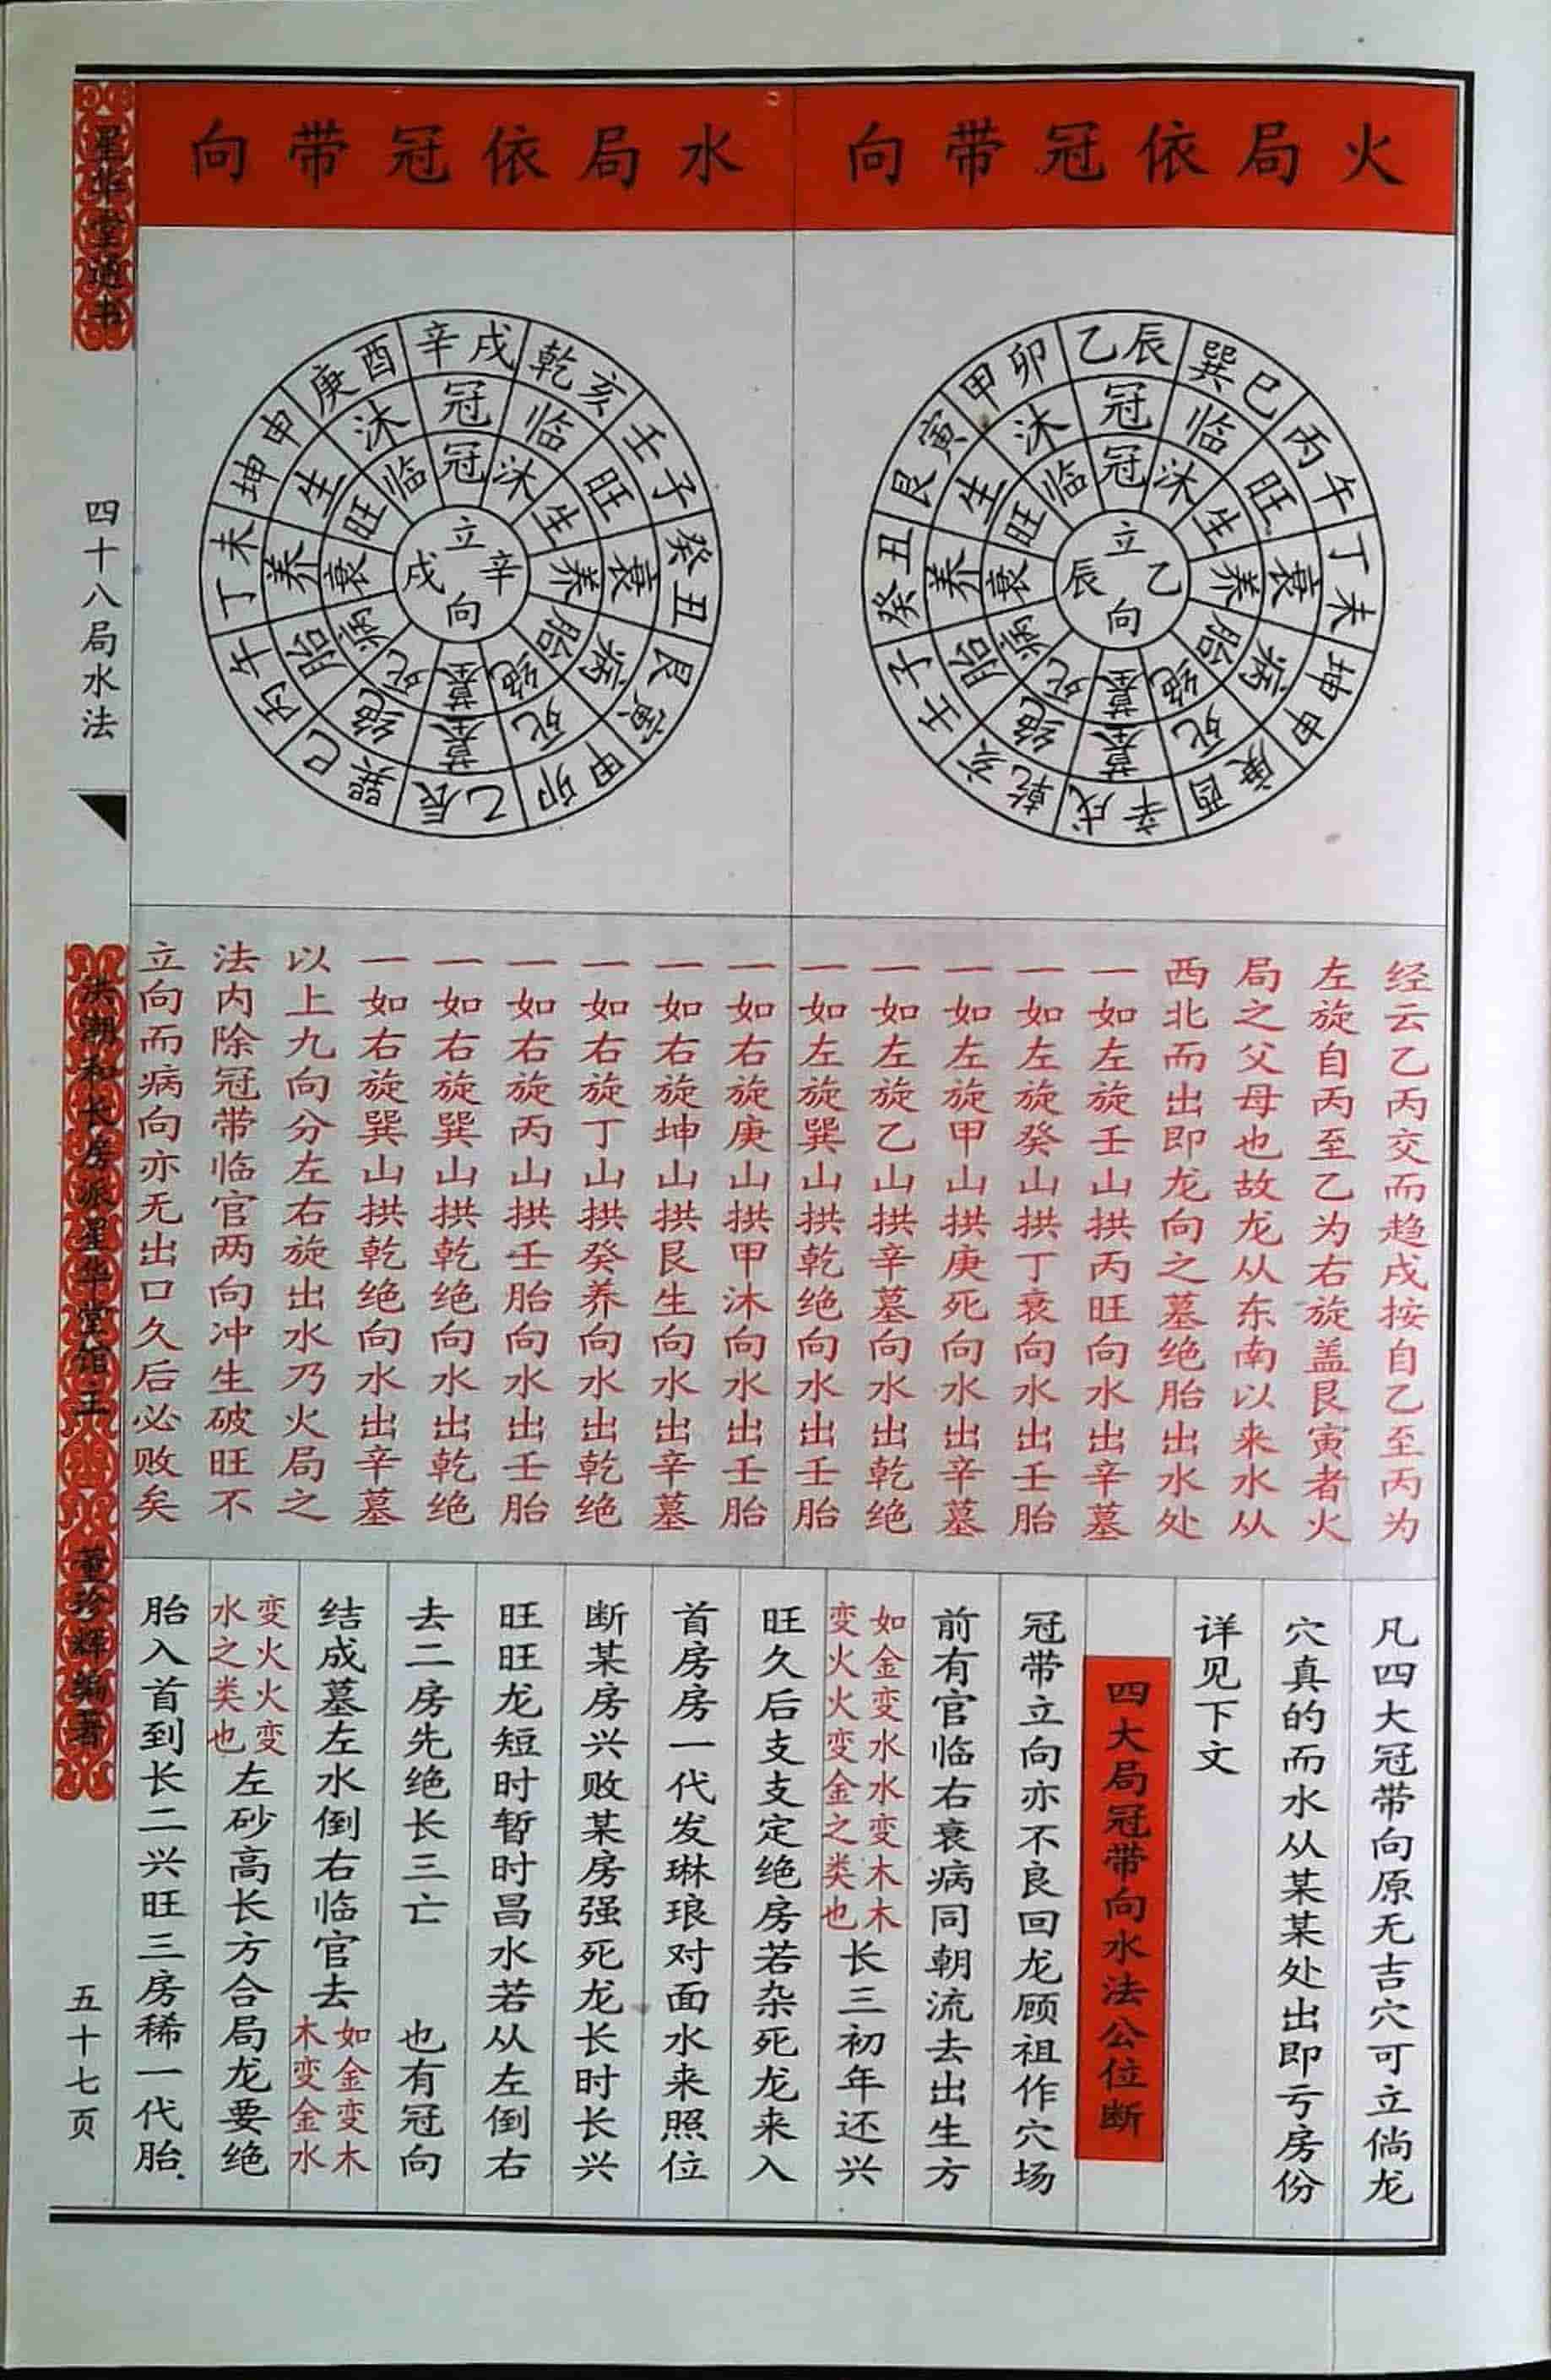 火局依冠带向
乙辰 巽巳 丙午 丁未 坤申 庚酉 辛戌 乾亥 壬子 癸丑 艮寅 甲卯
冠 临 旺 衰 病 死 墓 绝 胎 养 生 沐
冠 沐 生 养 胎 绝 墓 死 病 衰 旺 临
立 乙 辰 向
水局依冠带向
辛戌 乾亥 壬子 癸丑 艮寅 甲卯 乙辰 巽巳 丙午 丁未 坤申 庚酉
冠 临 旺 衰 病 死 墓 绝 胎 养 生 沐
冠 沐 生 养 胎 绝 墓 死 病 衰 旺 临
立 辛 戌 向
经云乙丙交而趋戌按自乙至丙为
左旋自丙至乙为右旋盖艮寅者火
局之父母也故龙从东南以来水从
西北而出即龙向之墓绝胎出水处
一如左旋壬山拱丙旺向水出辛墓
一如左旋癸山拱丁衰向水出壬胎
一如左旋甲山拱庚死向水出辛墓
一如左旋乙山拱辛墓向水出乾绝
一如左旋巽山拱乾绝向水出壬胎
一如右旋庚山拱甲沐向水出壬胎
一如右旋坤山拱艮生向水出辛墓
一如右旋丁山拱癸养向水出乾绝
一如右旋丙山拱壬胎向水出壬胎
一如右旋巽山拱乾绝向水出乾绝
一如右旋巽山拱乾绝向水出辛墓
以上九向分左右旋出水乃火局之
法内除冠带临官两向冲生破旺不
立向而病向亦无出口久后必败矣
凡四大冠带向原无吉穴可立倘龙
穴真的而水从某某处出即亏房份
详见下文
四大局冠带向水法公位断
冠带立向亦不良回龙顾祖作穴场
前有官临右衰病同朝流去出生方
如金变水水变木木
变火火变金之类也
长三初年还兴
旺久后支支定绝房若杂死龙来入
首房房一代发琳琅对面水来照位
断某房兴败某房强死龙长时长兴
旺旺龙短时暂时昌水若从左倒右
去二房先绝长三亡 也有冠向
结成墓左水倒右临官去
如金变木
木变金水
变火火变
水之类也
左砂高长方合局龙要绝
胎入首到长二兴旺三房稀一代胎
星华堂通书
四十八局水法
洪潮和长房派星华堂馆主
董珍辉编著
五十七页